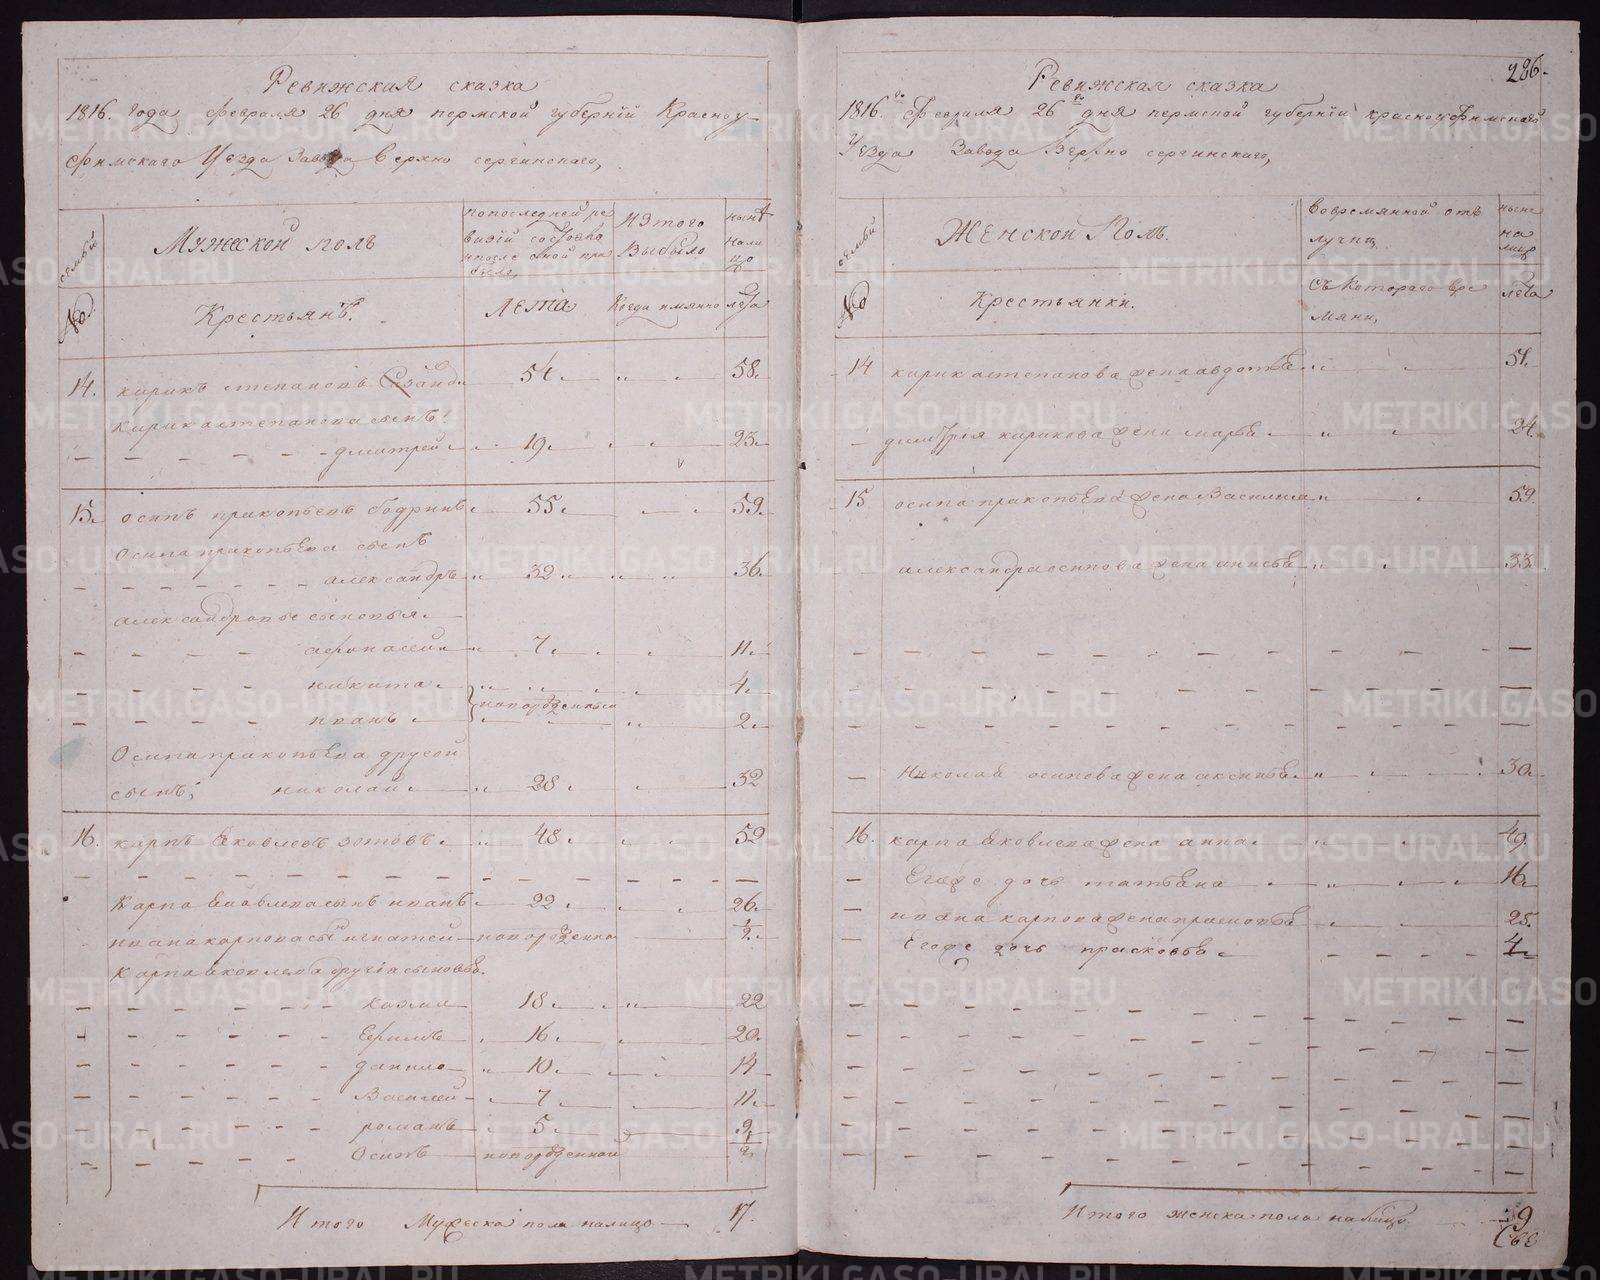 Ревижская сказка
1816. года февраля 26 дня пермской губернiй Красноу-
фимского Уезда Завода Верхно сергинского,
семьи
№
Мужеской полъ
Крестьянъ.
попоследней ре
визiй состояло
ипосле оной при
было,
Лета
изтого
Выбыло
Когда имянно
нынѣ
Нали
цо
лета
14. кирикъ степановъ 54. 58.
кирика степанова сынъ
дмитрей 19. 23.
15. осипъ пракопьевъ бодринъ 55. 59.
Осипа пракопьева сынъ
александръ 32. 36.
александровы сыновья
афонасей 7. 11.
никита 4.
новорожденныя
иванъ 2.
Осипа пракопьева другой
сынъ, николай 28. 32
16. карпъ яковлевъ зотовъ 48. 52
Карпа яковлева сынъ иванъ 22. 26.
ивана карпова сынъ новорожденной 1/2.
Карпа яковлева другiя сыновья.
козма 18. 22
Ефимъ 16. 20.
данило 10. 14
Василей 7 11.
романъ 5. 9.
Осипъ новорожденной 1/2
Итого Мужеска пола налицо 17.
286.
Ревижская сказка
1816.го Февраля 26го дня пермской губернiй красноуфимского
Уезда Завода Верхно сергинского,
семьи
№
Женской Полъ.
Крестьянки.
вовремянной отъ
лучки
Съ Котораго вре
мяни,
ныне
на
лицо
лета
14 кирика степанова жена авдотья 51.
димитрiя кирикова жена марья 24.
15 осипа пракопьева жена Василиса 59.
александра осипова жена анисья 33.
Николая осипова жена аксинья 30.
16. карпа яковлева жена анна 49.
Егоже дочь татьяна 16.
ивана карпова жена 25.
Егоже дочь прасковья 4.
Итого женска пола налицо 9
METRIKI.GASO-URAL.RU